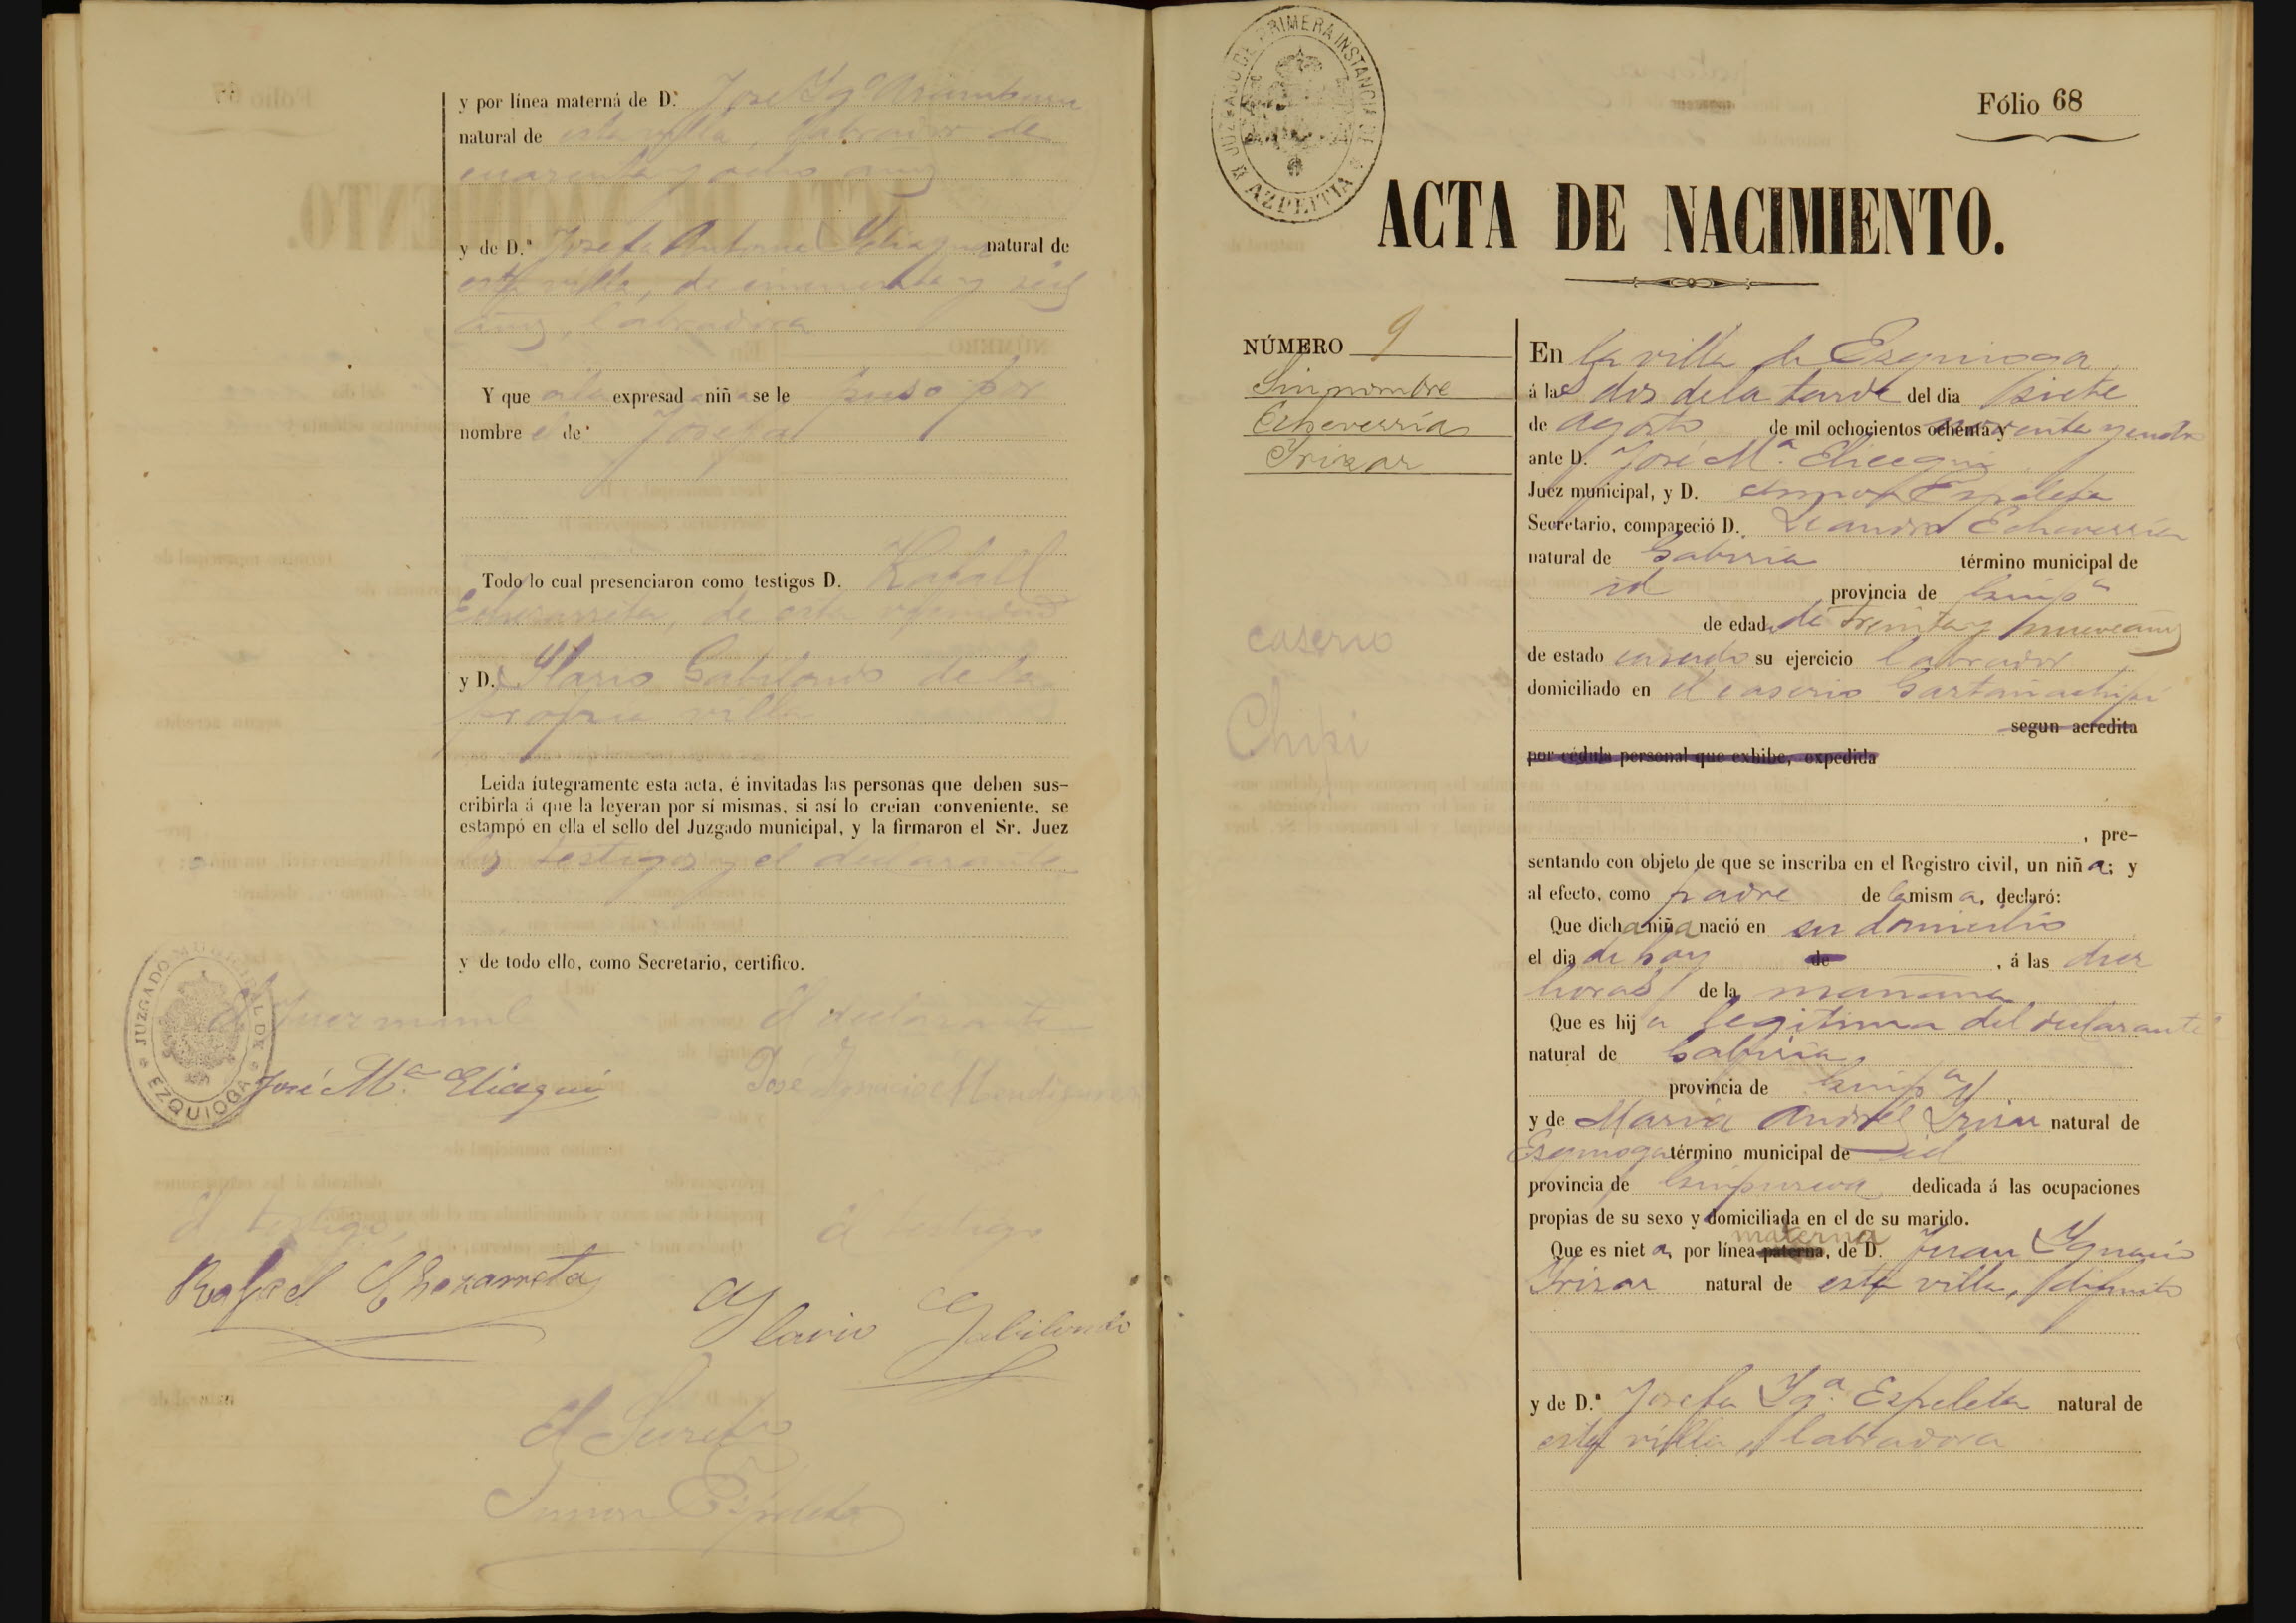 y por línea materna de D. José Yg.º Aramburu
natural de esta villa, labrador de
cuarenta y ocho años
y de D.ª Josefa Antonia natural de
esta villa, de cincuenta y seis
años, labradora
Y que á la expresad a niñ a se le puso por
nombre é de Josefa
Todo lo cual presenciaron como testigos D. Rafael
Echezarreta, de esta
y D. Ylario Gabilondo de la
propia villa
Leida íntegramente esta acta, é invitadas las personas que deben sus-
cribirla á que la leyeran por sí mismas, si así lo creian conveniente, se
estampó en ella el sello del Juzgado municipal, y la firmaron el Sr. Juez
los testigos y el declarante
y de todo ello, como Secretario, certifico.
JUZGADO MUNICIPAL DE EZQUIOGA
El Juez munl
El declarante
José M.ª Elicegui
José Ignacio Mendizabal
El testigo,
El testigo
Rafael Echezarreta
Ylario Gabilondo
El Secret.º
Simon Espeleta
JUZGADO DE PRIMERA INSTANCIA DE AZPEITIA
Fólio 68
ACTA DE NACIMIENTO.
NÚMERO 9
Sin nombre
Echeverría
Irizar
caserio
Chipi
En la villa de Ezquioga
á las dos de la tarde del dia siete
de Agosto de mil ochocientos ochenta y noventa y cuatro
ante D. José M.ª Elicegui
Juez municipal, y D. Simon Espeleta
Secretario, compareció D. Leandro Echeverria
natural de Gabiria término municipal de
id provincia de Guip.ª
de edad de treinta y nueve años
de estado casado su ejercicio labrador
domiciliado en el caserio Gartañachipi
segun acredita
por cédula personal que exhibe, expedida
, pre-
sentando con objeto de que se inscriba en el Registro civil, un niñ a; y
al efecto, como padre de la mism a, declaró:
Que dicha niña nació en su domicilio
el dia de hoy de , á las diez
horas de la mañana
Que es hij a legitima del declarante
natural de Gabiria,
provincia de Guip.ª
y de Maria Andres Irizar natural de
Ezquioga término municipal de id
provincia de Guipuzcoa dedicada á las ocupaciones
propias de su sexo y domiciliada en el de su marido.
materna
Que es niet a por línea paterna, de D. Juan Ygnacio
Irizar natural de esta villa, difunto
y de D.ª Josefa Yg.ª Espeleta natural de
esta villa labradora